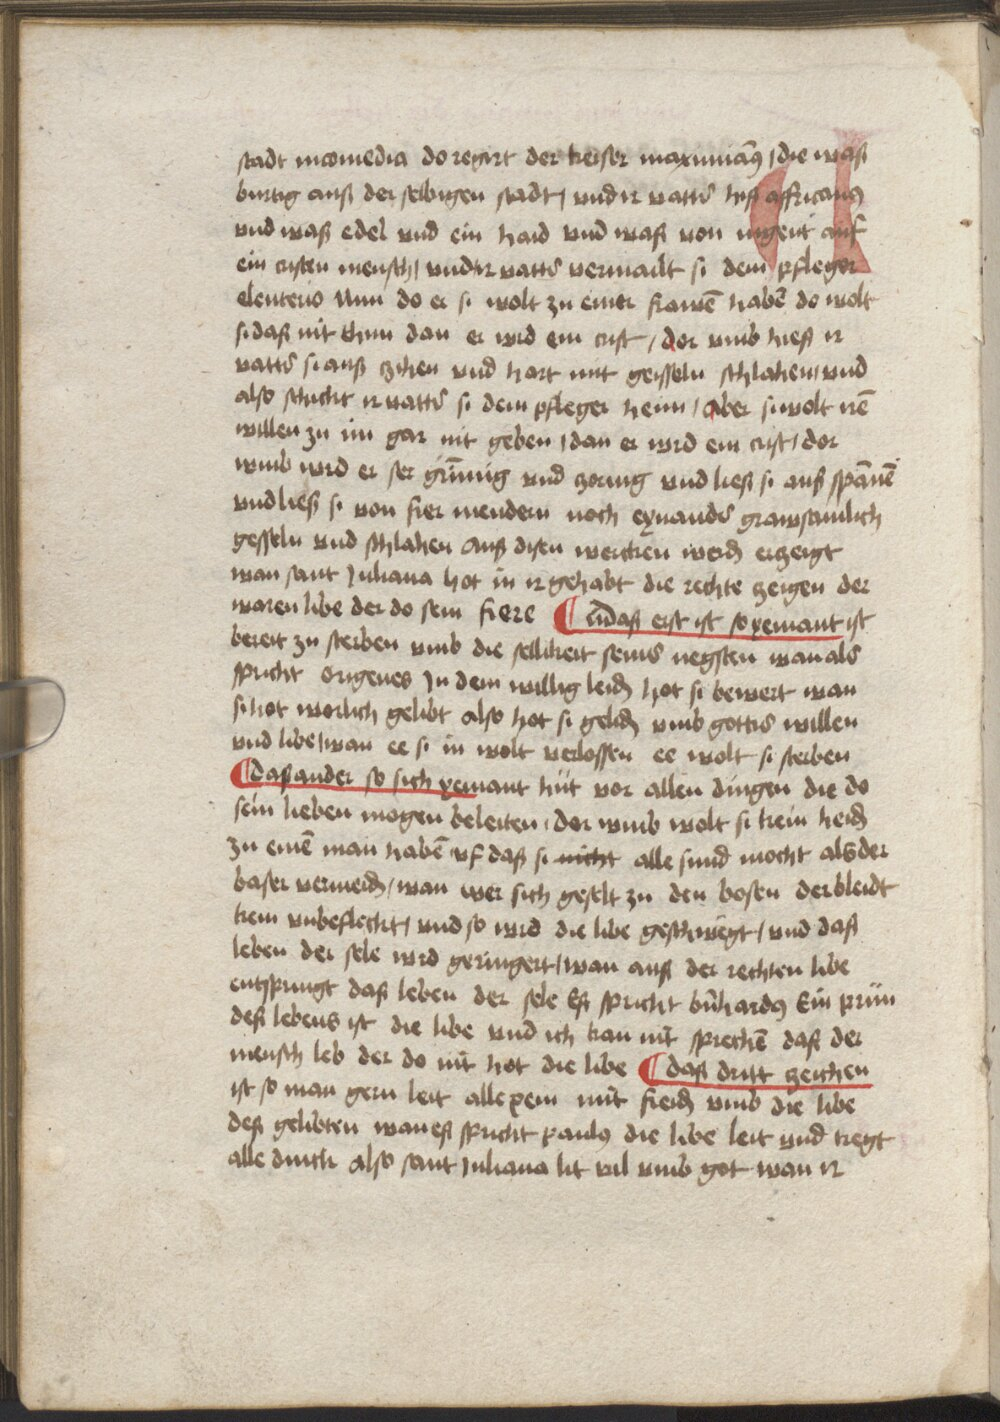 stadt nicomedia do regirt der keiser maximian9 / die waß
burtig auß der selbigen stadt / vnd ir vatter hiß affrican9
vnd waß edel vnd ein haid vnd waß von iugent auf
ein cristen mensch / vnd ir vatter vermailt si dem pfleger
eleuterio Nun do er si wolt zu einer frawē habē do wolt
si daß nit thun dan er wrd ein crist / dor vmb hieß ir
vatter si auß zihen vnd hart mit geisseln schlahen / vnd
also schickt ir vatter si dem pfleger heim / Aber si wolt irē
willen zu im gar nit geben / dan er wrd ein crist / dor
vmb wrd er ser grīmig vnd zornig vnd ließ si auß spānē
vnd ließ si von fier mendern noch exnander grawsamlich
gesseln vnd schlahen Auß disen wercken werdn erzeigt
wan sant Juliana hot in ir gehabt die rechte zeigen der
waren libe der do sein fiere ¶ daß erst ist so yemant ist
bereit zu sterben vmb die sellikeit seins negsten wan als
spricht Origenes In dem willig leidn hot si bewert wan
si hot worlich gelibt also hot si gelidn vmb gottes willen
vnd libe / wan ee si in wolt verlossen ee wolt si sterben
¶ daß ander so sich yemant hüt vor allen dingen die do
sein lieben mogen beleiten / dor vmb wolt si kein heidn
zu einē man habē vf daß si nicht alle sund mocht als der
baser vermeidn / wan wer sich geselt zu den bosen der bleidt
kein vnbeflecht / vnd so wrd die libe geschwegt / vnd daß
leben der sele wrd geringert / wan auß der rechten libe
entspringt daß leben der sele Eß spricht bn̄hard9 Ein prün
deß lebens ist die libe vnd ich kan nit sprechē daß der
mensch leb der do nit hot die libe ¶ daß dritt zeichen
ist so man gern leit alle pein mit freidn vmb die libe
deß gelibten wan eß spricht paul9 die libe leit vnd tregt
alle dinck also sant Juliana lit vil vmb got wan ir